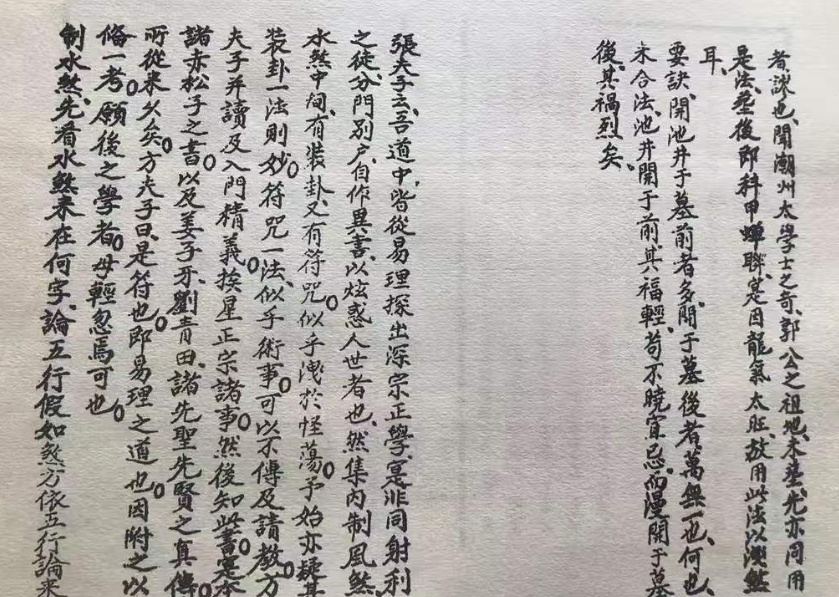 者謬也、聞潮州太學士之奇、郭公之祖地、未塟、先亦同用
是法、塟後即科甲蟬聯、寔因龍氣太旺、故用此法以洩煞
耳、
要訣、開池井于墓前者多、開于墓後者萬無一也、何也、
未合法、池井開于前、其福輕、苟不曉宜忌、而漫開于墓
後、其禍烈矣、
張夫子云、吾道中、皆從易理探出深宗正學、寔非同射利
之徒、分門別户、自作異書、以炫惑人世者也、然集内制風煞
水煞中间、有裝卦、又有符咒、似乎洩於怪蕩、予始亦疑其
裝卦一法則妙、符咒一法、似乎術事、可以不傳、及請教方
夫子并讀及入門精義挨星正宗諸事、然後知此書寔本
諸赤松子之書、以及姜子牙、劉青田、諸先聖先賢之真傳
所從来久矣、方夫子曰、是符也、即易理之道也、因附之以
俻一考、願後之學者、毋輕忽焉可也
制水煞、先看水煞来在何字、論五行假如煞方依五行論来